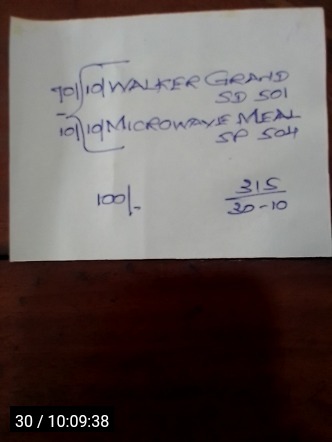 90/ 10/ WALKER GRAND
SD 501
10/ 10/ MICROWAVE MEAL
SP 504
100/-
315
30-10
30 / 10:09:38